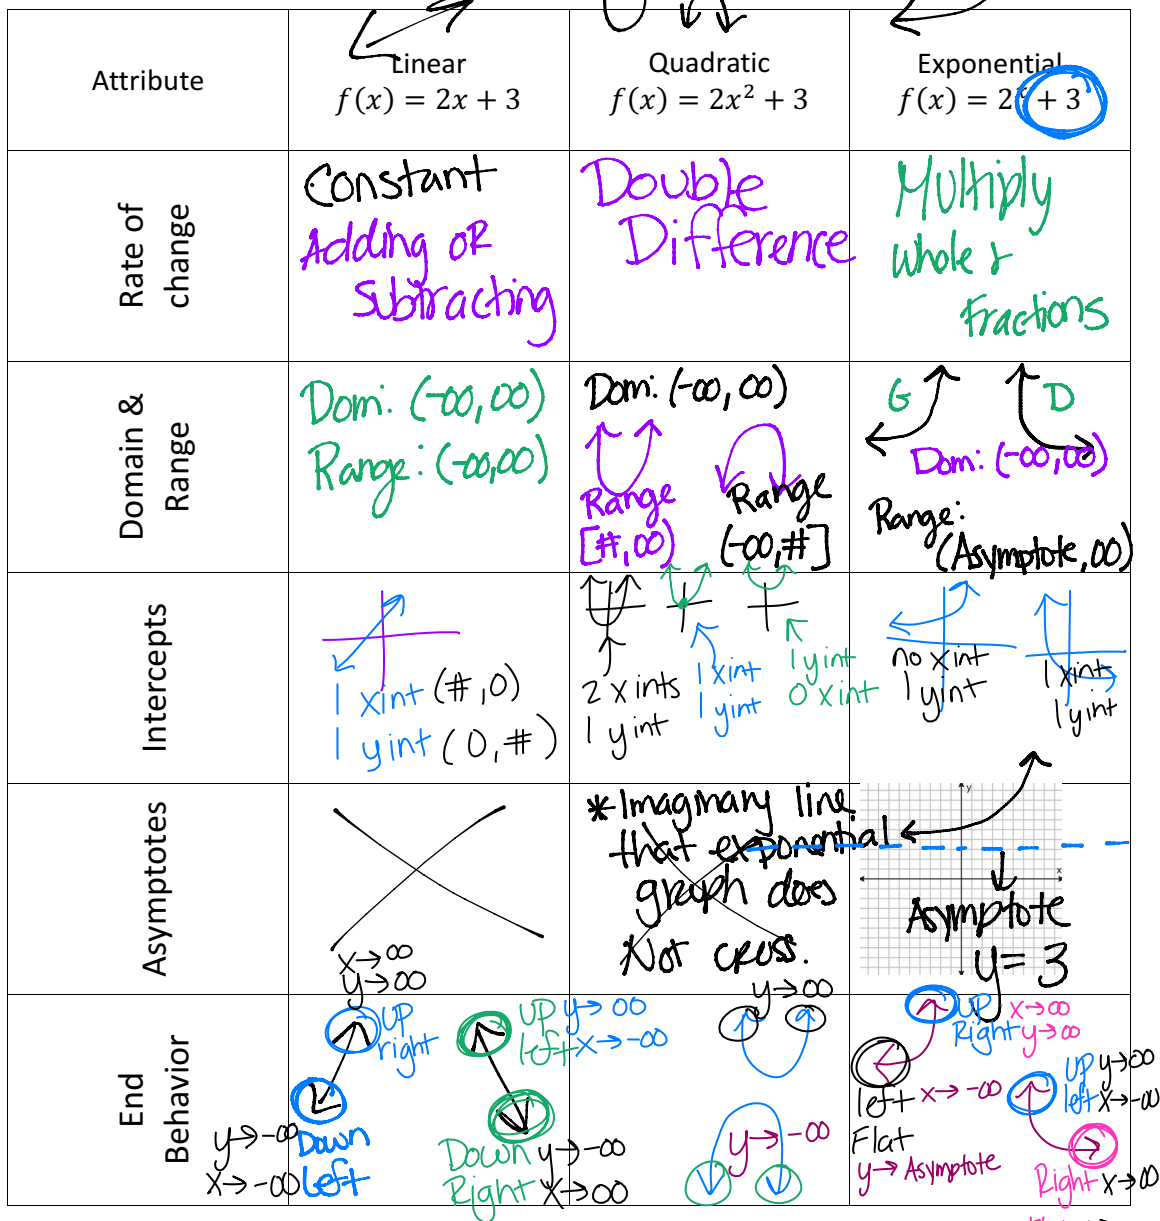 Attribute
Linear
f(x) = 2x + 3
Quadratic
f(x) = 2x² + 3
Exponential
f(x) = 2ˣ + 3
Rate of
change
Constant
Adding or
Subtracting
Double
Difference
Multiply
Whole &
Fractions
Domain &
Range
Dom: (-∞, ∞)
Range: (-∞, ∞)
Dom: (-∞, ∞)
Range
[#, ∞)
Range
(-∞, #]
G
D
Dom: (-∞, ∞)
Range:
(Asymptote, ∞)
Intercepts
1 xint (#, 0)
1 yint (0, #)
2 x ints
1 y int
1 xint
1 yint
1 yint
0 xint
no xint
1 yint
1 xint
1 yint
Asymptotes
*Imaginary line
that exponential
graph does
Not cross.
y
x
Asymptote
y = 3
End
Behavior
x→∞
y→∞
UP
right
y→-∞
x→-∞
Down
Left
UP y→∞
left x→-∞
Down y→-∞
Right x→∞
y→∞
y→-∞
UP x→∞
Right y→∞
left x→-∞
Flat
y→Asymptote
UP y→∞
left x→-∞
Right x→∞